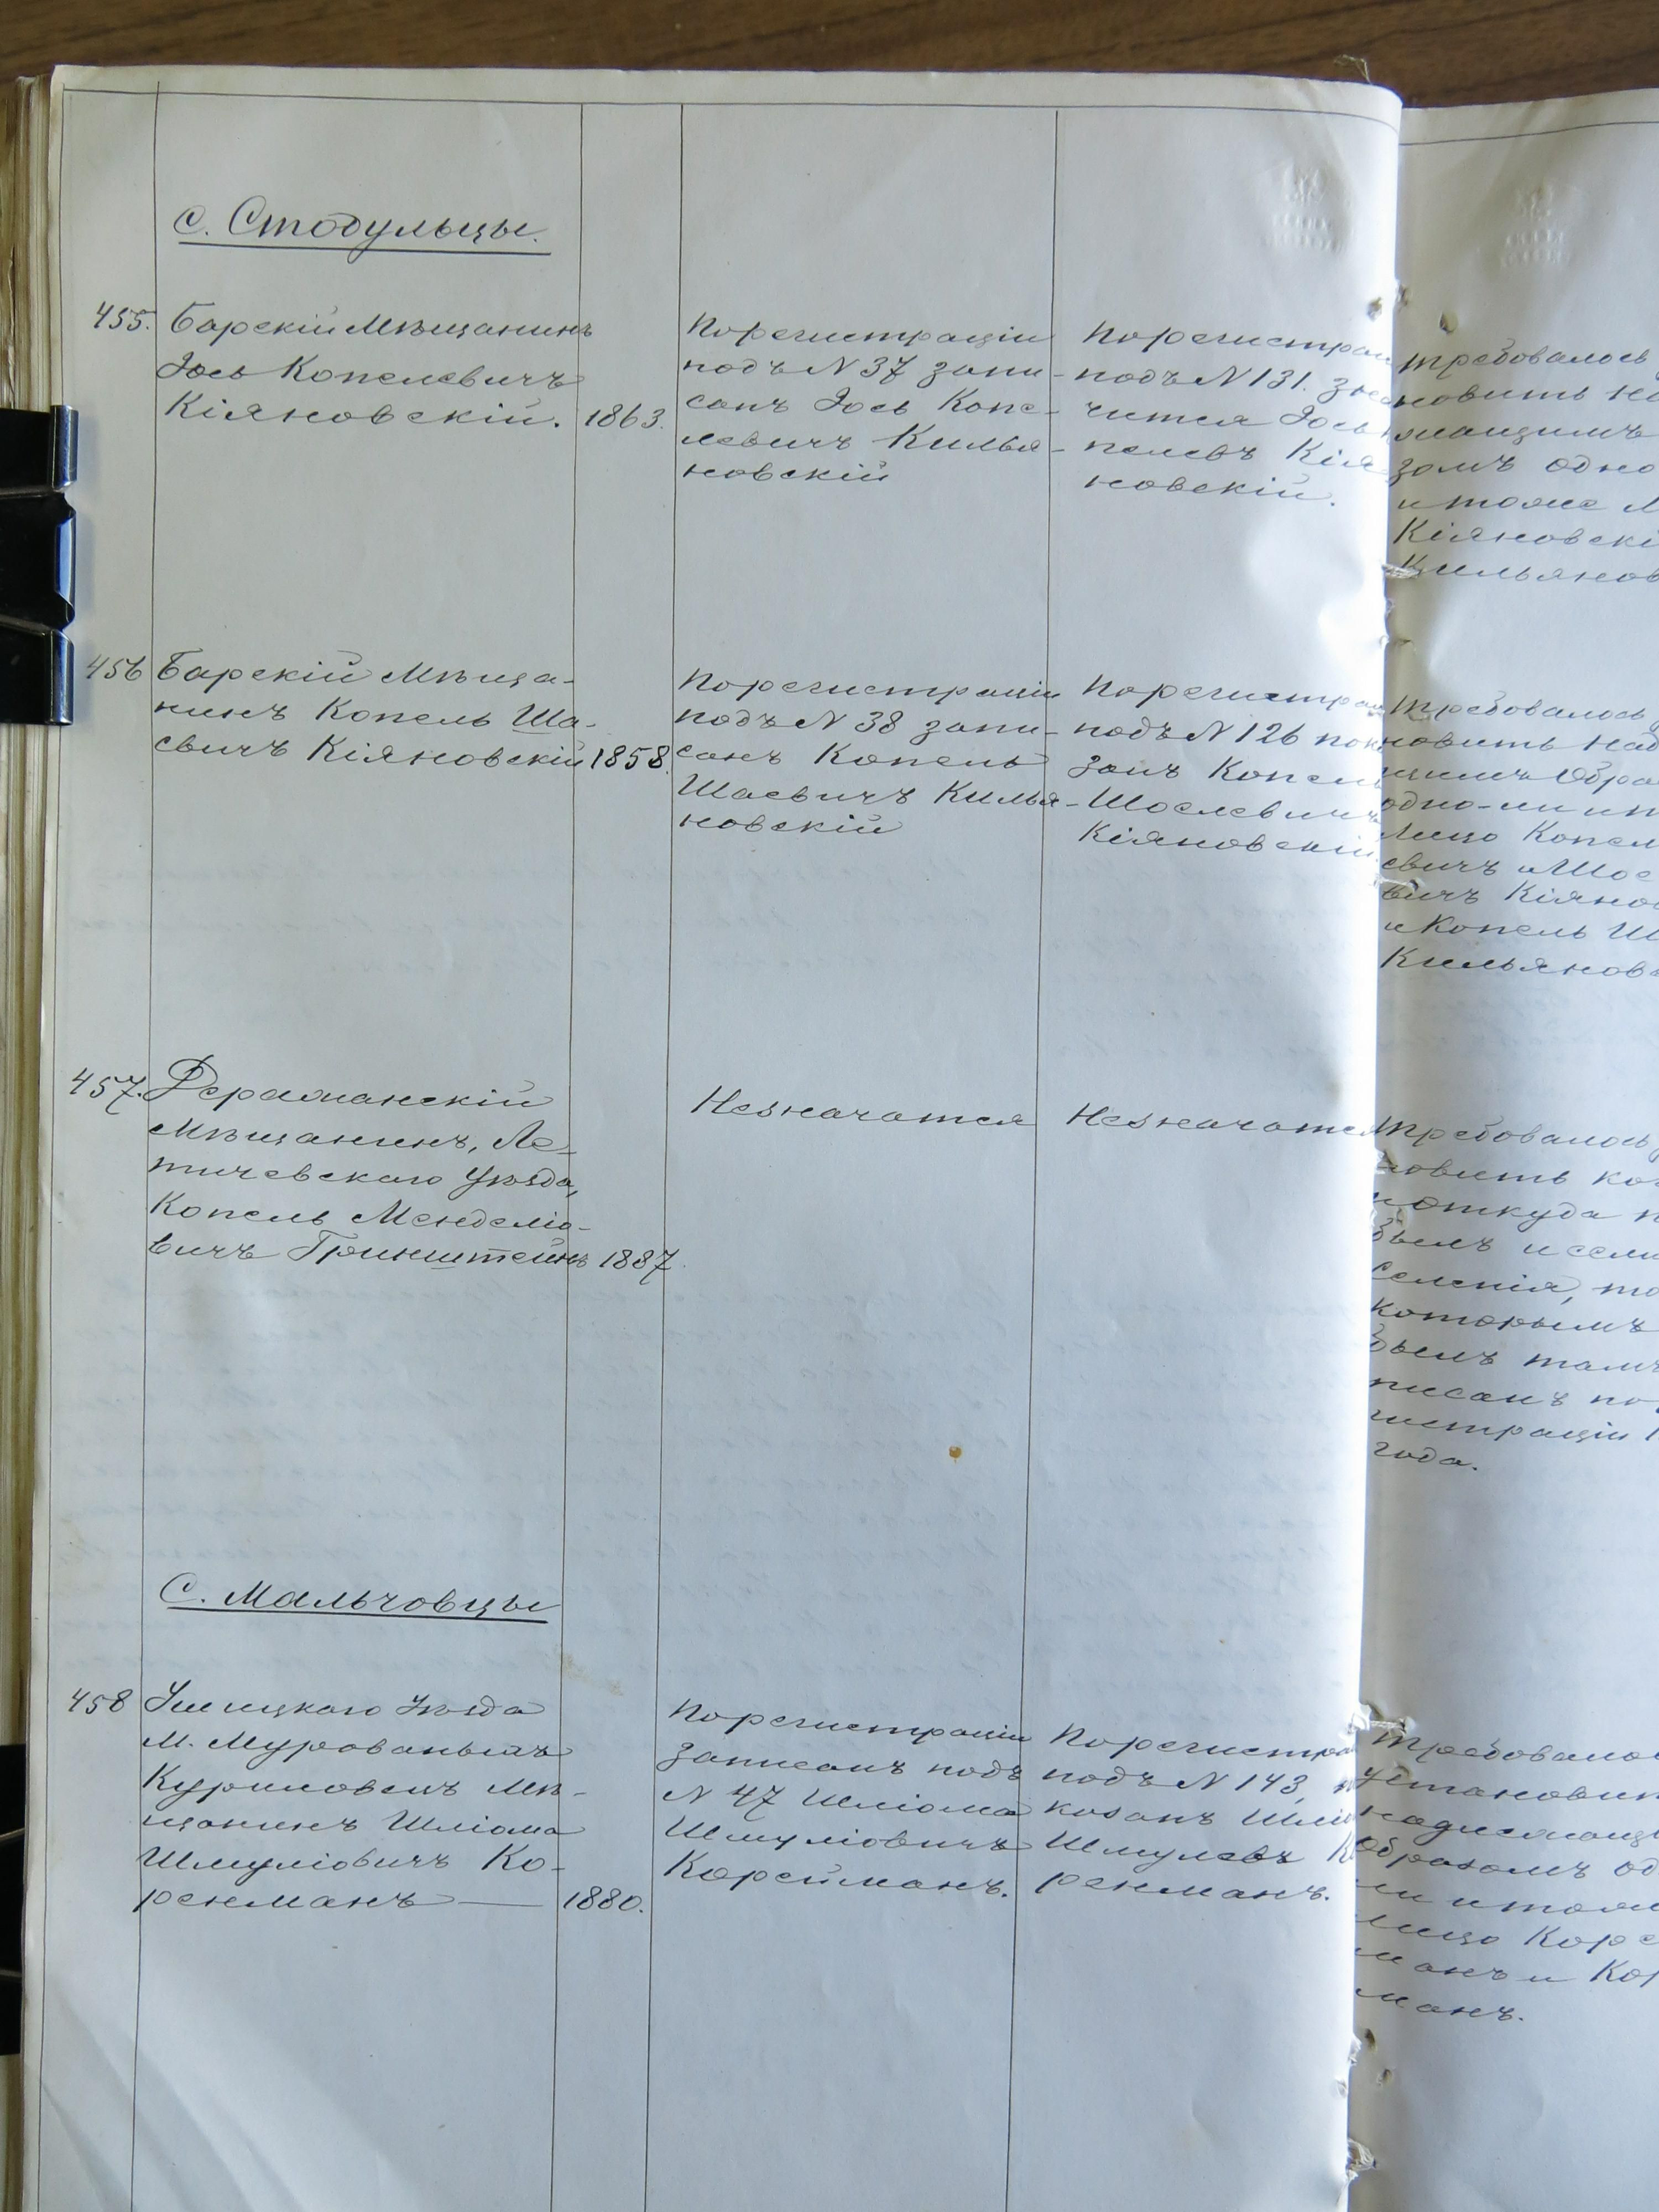 с. Стодульцы.
455. Барскій Мѣщанинъ
Іось Копелевичъ
Кіяновскій. 1863.
По регистраціи
подъ N 37 запи-
санъ Іось Копе-
левичъ Килья-
новскій
По регистрац
подъ N 131. зн
чится Іось
пелевъ Кія
новскій.
требовалось
новить на
лежащимъ
зомъ одно
и тоже
Кіяновскі
Кильянов
456 Барскій Мѣща-
нинъ Копель Ша-
евичъ Кіяновскій 1858.
По регистраціи
подъ N 38 запи-
санъ Копель
Шаевичъ Килья-
новскій
По регистра
подъ N 126 пок
занъ Копел
Шоелевичъ
Кіяновскій
требовалось
новить над
щимъ Обра
одно-ли и т
лицо Копел
евичъ и Шое
вичъ Кіянов
и Копель Ш
Кильянов
457. Деражанскій
Мѣщанинъ, Ле-
тичевскаго Уѣзда,
Копель Менделіо-
вичъ Гринштейнъ 1887.
Незначатся
Незначатся
требовалось
новить ког
и откуда п
былъ и если
селенія, то
которымъ
былъ тамъ
писанъ по
гистраціи 1
года.
С. Мальчовцы
458 Ушицкаго Уѣзда
М. Мурованыхъ
Куриловецъ Мѣ-
щанинъ Шліома
Шмуліовичъ Ко-
ренманъ — 1880.
По регистраціи
записанъ подъ
N 47 Шліома
Шмуліовичъ
Корейманъ.
По регистра
подъ N 143,
казанъ Шлі
Шмулевъ К
ренманъ.
требовалос
установит
надлежащ
Образомъ од
ли и тоже
лицо Коре
манъ и Кор
манъ.